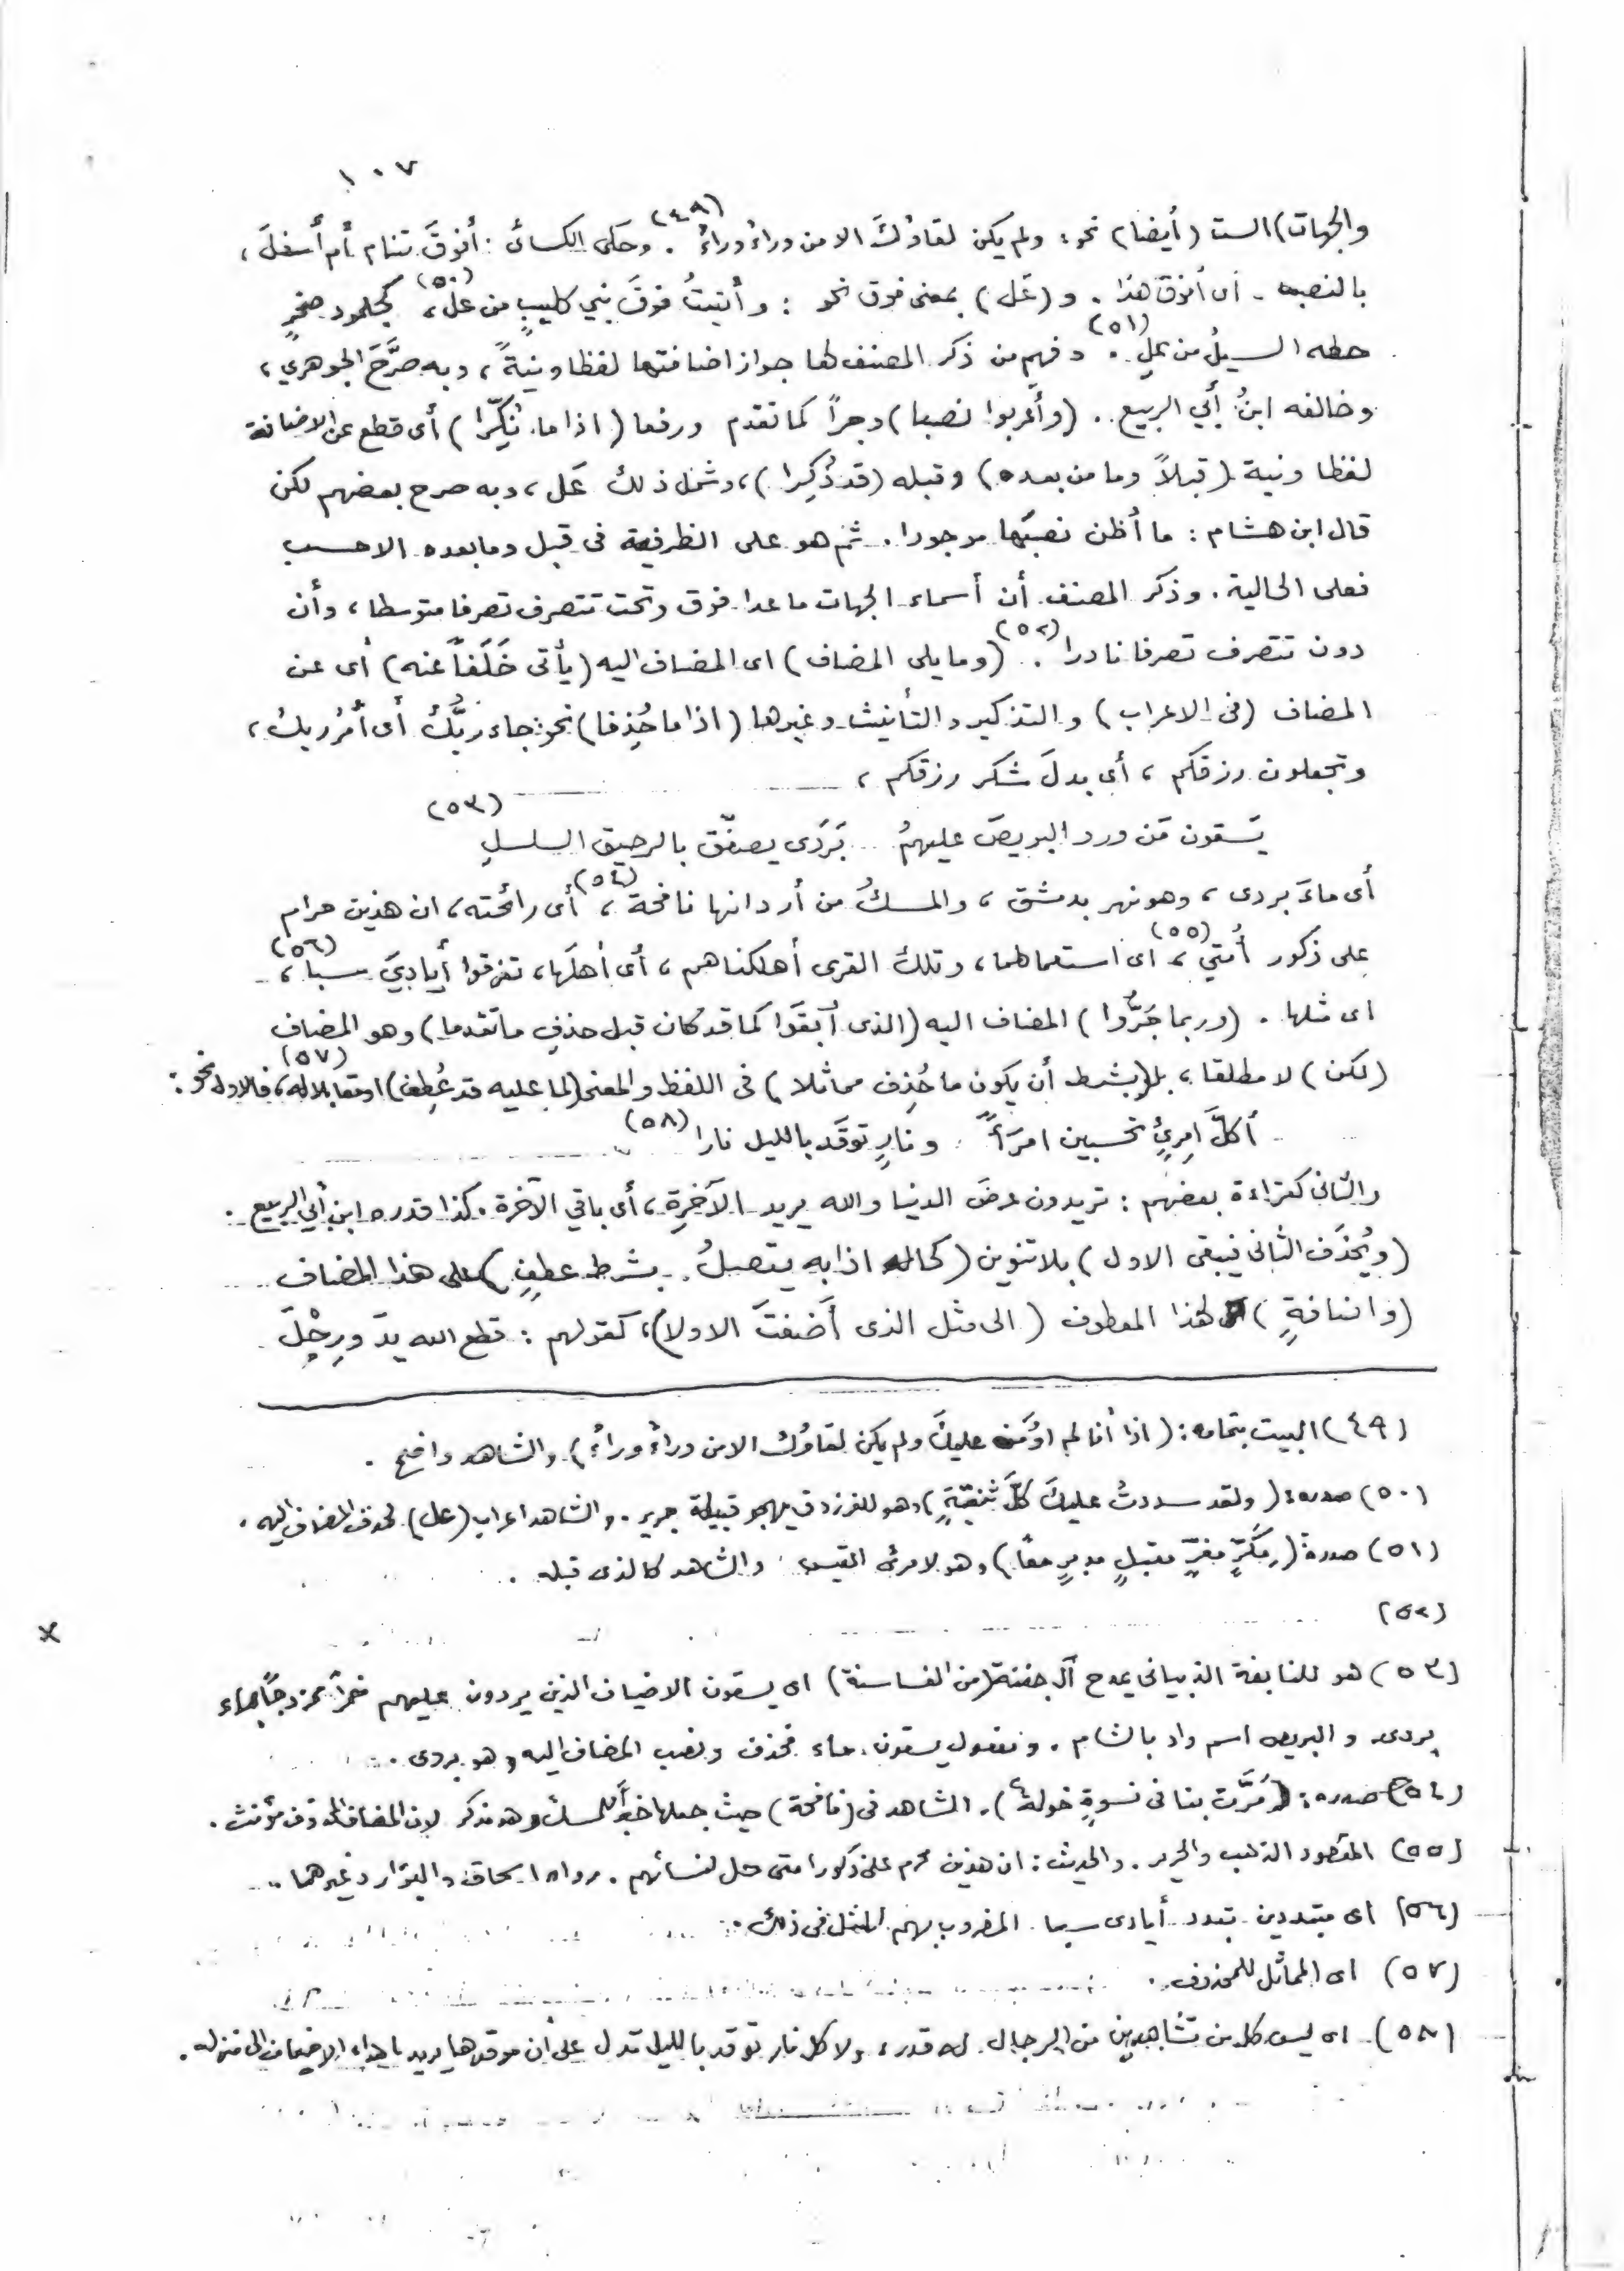 ١٠٧
والجهات) الست (أيضا) نحو: ولم يكن لقاؤكَ الا من وراءُ وراءُ (٤٩). وحكى الكسائى: أفوقَ تنام أم أسفلَ،
بالنصب - أى أفوقَ هذا. و (عَل) بمعنى فوق نحو: وأتيتُ فوقَ بني كليبٍ من علُ (٥٠)، كجلمود صخرٍ
حطه السيلُ من علِ (٥١). وفهم من ذكر المصنف لها جواز اضافتها لفظا ونيةً، وبه صرَّحَ الجوهري،
وخالفه ابنُ أبي الربيع. (وأعربوا نصبا) وجراً كما تقدم ورفعا (اذا ما نُكِّرا) أى قطع عن الاضافة
لفظا ونية (قبلاً وما من بعده) وقبله (قد ذُكِرا)، وشمل ذلك عَل، وبه صرح بعضهم لكن
قال ابن هشام: ما أظن نصبَها موجودا. ثم هو على الظرفية فى قبل وما بعده الا حسب
فعلى الحالية. وذكر المصنف أن أسماء الجهات ما عدا فوق وتحت تتصرف تصرفا متوسطا، وأن
دون تتصرف تصرفا نادرا (٥٢). (وما يلى المضاف) اى المضاف اليه (يأتى خَلَفاً عنه) أى عن
المضاف (فى الاعراب) والتذكير والتأنيث وغيرها (اذا ما حُذِفا) نحو: جاء ربُّكَ أى أمْرُ ربك،
وتجعلون رزقكم، أى بدلَ شكر رزقكم،
يَسقون مَن ورد البريصَ عليهمُ بَرَدَى يصفّق بالرحيق السلسلِ (٥٣)
أى ماءَ بردى، وهو نهر بدمشق، والمسكُ من أردانها نافحة (٥٤)، أى رائحته، ان هذين حرام
على ذكور أُمتي (٥٥)، اى استعمالهما، وتلك القرى أهلكناهم، أى أهلَها، تفرقوا أياديَ سبا (٥٦)،
اى مثلها. (وربما جَرُّوا) المضاف اليه (الذى أبقَوا كما قد كان قبل حذفِ ما تقدما) وهو المضاف
(لكن) لا مطلقا، بل (بشرط أن يكون ما حُذِف مماثلا) فى اللفظ والمعنى (لما عليه قد عُطِف) او مقابلا له (٥٧)، فالاول نحو:
أكلَّ امرئٍ تحسبين امرَأً ونارٍ توقَد بالليل نارا (٥٨)
والثانى كقراءة بعضهم: تريدون عرضَ الدنيا والله يريد الآخرةِ، أى باقي الآخرة. كذا قدره ابن أبي الربيع.
(ويُحذَف الثانى فيبقى الاول) بلا تنوين (كحاله اذا به يتصلُ بشرط عطفٍ) على هذا المضاف
(واضافةٍ) لهذا المعطوف (الى مثل الذى أضفتَ الاولا)، كقولهم: قطع الله يدَ ورِجْلَ
(٤٩) البيت بتمامه: (اذا أنا لم أُومَن عليكَ ولم يكن لقاؤك الا من وراءُ وراءُ). والشاهد واضح.
(٥٠) صدره: (ولقد سددتُ عليكَ كلَّ ثنيّةٍ) وهو للفرزدق يهجو قبيلة جرير. والشاهد اعراب (عل) لحذف المضاف اليه.
(٥١) صدرهُ (مِكَرٍّ مفرٍّ مقبلٍ مدبرٍ معًا) وهو لامرئ القيس والشاهد كالذى قبله.
(٥٢)
(٥٣) هو للنابغة الذبيانى يمدح آل جفنة (من الغساسنة) اى يسقون الاضياف الذين يردون عليهم خمراً ممزوجاً بماء
بردى. والبريص اسم واد بالشام. ومفعول يسقون ماء فحذف ونصب المضاف اليه وهو بردى.
(٥٤) صدره: (مَرَّت بنا فى نسوةٍ خولةٌ). الشاهد فى (نافحة) حيث جعلها خبراً للمسك وهو مذكر لان المضاف المحذوف مؤنث.
(٥٥) المقصود الذهب والحرير. والحديث: ان هذين محرم على ذكور امتى حل لنسائهم. رواه اسحاق والبزار وغيرهما.
(٥٦) اى متبددين تبدد أيادى سبا المضروب بهم المثل فى ذلك.
(٥٧) اى المماثل للمحذوف.
(٥٨) اى ليس كل من تشاهدين من الرجال له قدر، ولا كل نار توقد بالليل تدل على أن موقدها يريد اهداء الاضياف الى منزله.